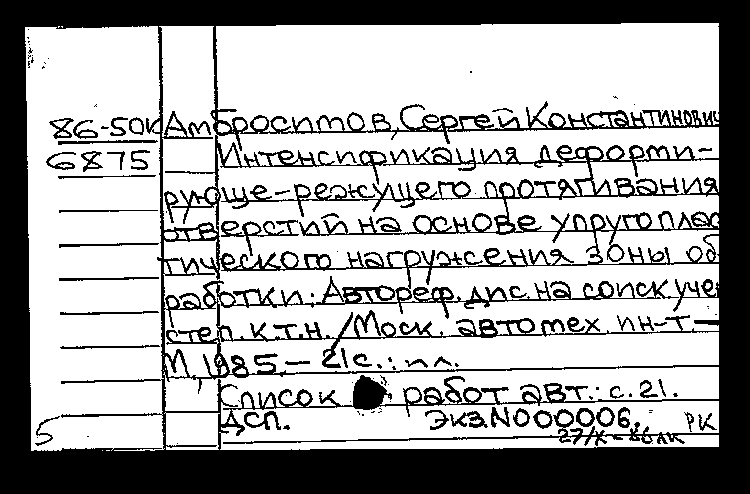 86-50К Амбросимов, Сергей Константинович
6875 Интенсификация деформи-
рующе-режущего протягивания
отверстий на основе упругоплас
тического нагружения зоны об
работки: Автореф. дис. на соиск уче
степ. к.т.н. / Моск. автомех. ин-т. —
М., 1985. — 21с.: ил.
Список работ авт.: с. 21.
ДСП. Экз. N000006.
5 27/X-86 РК